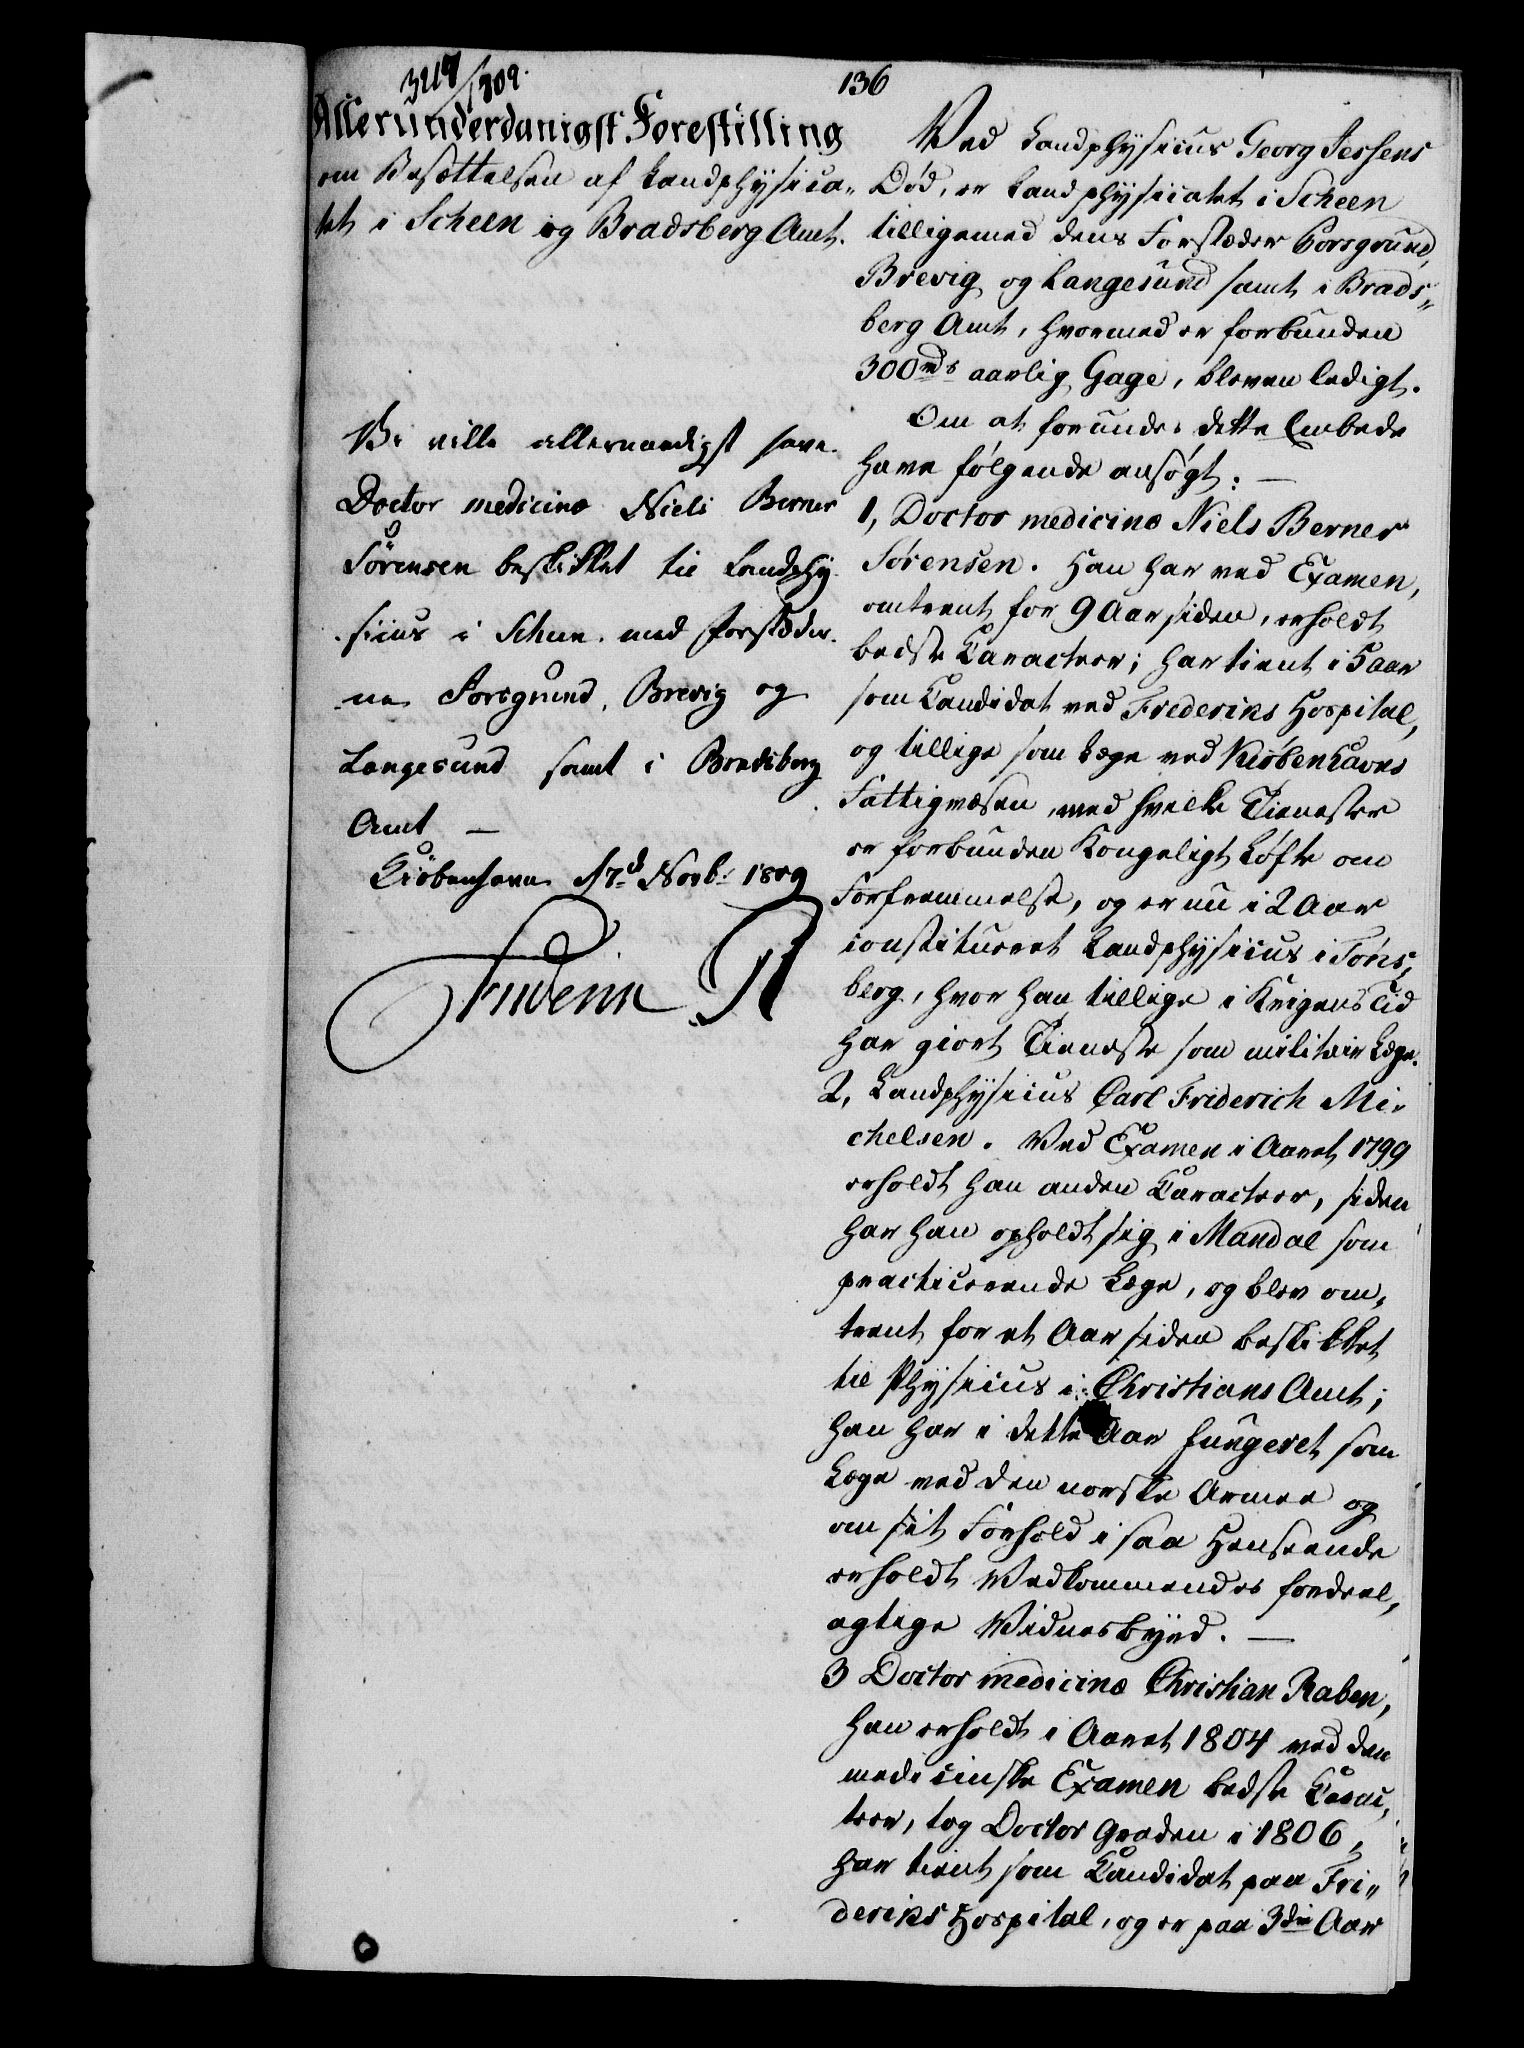 349/809.
136
Allerunderdanigst Forestilling
om Besættelsen af Landphysica-
tet i Scheen og Bradsberg Amt.
Vi ville allernaadigst have
Doctor medicinæ Niels Berner
Sörensen beskikket til Landphy-
sicus i Scheen med Forstæder-
ne Porsgrund, Brevig og
Langesund samt i Bradsberg
Amt —
Kiöbenhavn 17d Novb: 1809
Friderich R
Ved Landphysicus Georg Jessens
Død, er Landphysicatet i Scheen
tilligemed dens Forstæder Porsgrund,
Brevig og Langesund samt i Brads-
berg Amt, hvormed er forbunden
300 rds aarlig Gage, bleven ledigt.
Om at forundes dette Embede
have følgende ansøgt: —
1, Doctor medicinæ Niels Berner
Sörensen. Han har ved Examen,
omtrent for 9 Aar siden, erholdt
bedste Caracteer; har tient i 5 aar
som Candidat ved Frederiks Hospital,
og tillige som Læge ved Kiöbenhavns
Fattigvæsen, med hvilke Tienester
er forbunden Kongeligt Løfte om
Forfremmelse, og er nu i 2 Aar
constitueret Landphysicus i Töns-
berg, hvor han tillige i Krigens Tid
har giort Tieneste som militair Læge.
2, Landphysicus Carl Friderich Mi-
chelsen. Ved Examen i Aaret 1799
erholdt han anden Caracteer, siden
har han opholdt sig i Mandal som
practicerende Læge, og blev om-
trent for et Aar siden beskikket
til Physicus i Christians Amt;
han har i dette Aar fungeret som
Læge ved den norske Armee og
om sit Forhold i saa Henseende
erholdt Vedkommendes fordeel-
agtige Vidnesbyrd. —
3 Doctor medicinæ Christian Raben,
han erholdt i Aaret 1804 ved den
medicinske Examen bedste Carac-
teer, tog Doctor Graden i 1806,
har tient som Candidat paa Fri-
deriks Hospital, og er paa 3die Aar